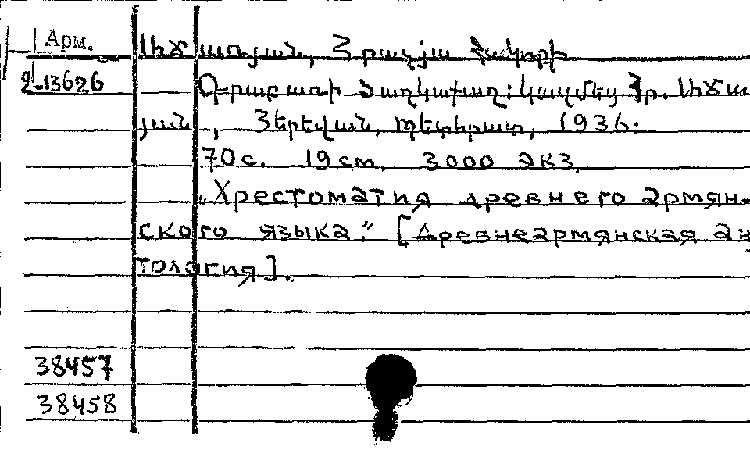 Арм.
2.13626
Աճառյան, Հրաչյա Հակոբի
Գրաբառի Ծաղկաքաղ: Կազմեց Հր. Աճառ
յան, Յերեվան, Պետհրատ, 1936.
70 с. 19 cm. 3000 экз.
„Хрестоматия древнего армян-
ского языка.“ [Древнеармянская ан
тология].
38457
38458